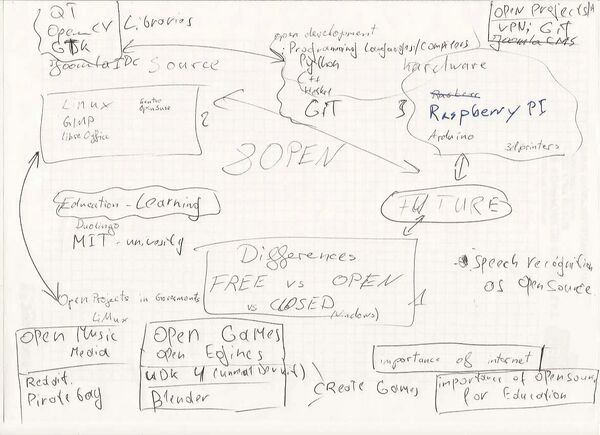 QT
OpenCV
GTK
Libraries
Joomla IDE
Source
open development
: Programming languages/compilers
Python
C++
Haskell
GIT
Open Projects
VPN; GIT
Joomla CMS
hardware
Raspberry PI
Arduino
3d printers
3
Linux
GIMP
Libre Office
Gentoo
OpenSuse
2
3OPEN
Education - Learning
Duolingo
MIT - university
FUTURE
Differences
FREE vs OPEN
vs CLOSED
(Windows)
1
Speech recognition
as OpenSource
Open Projects in Goverments
LiMux
Open Music
Media
Reddit.
Pirate bay
Open Games
Open Egines
UDK 4
Blender
Create Games
importance of internet
importance of Opensour
for Education